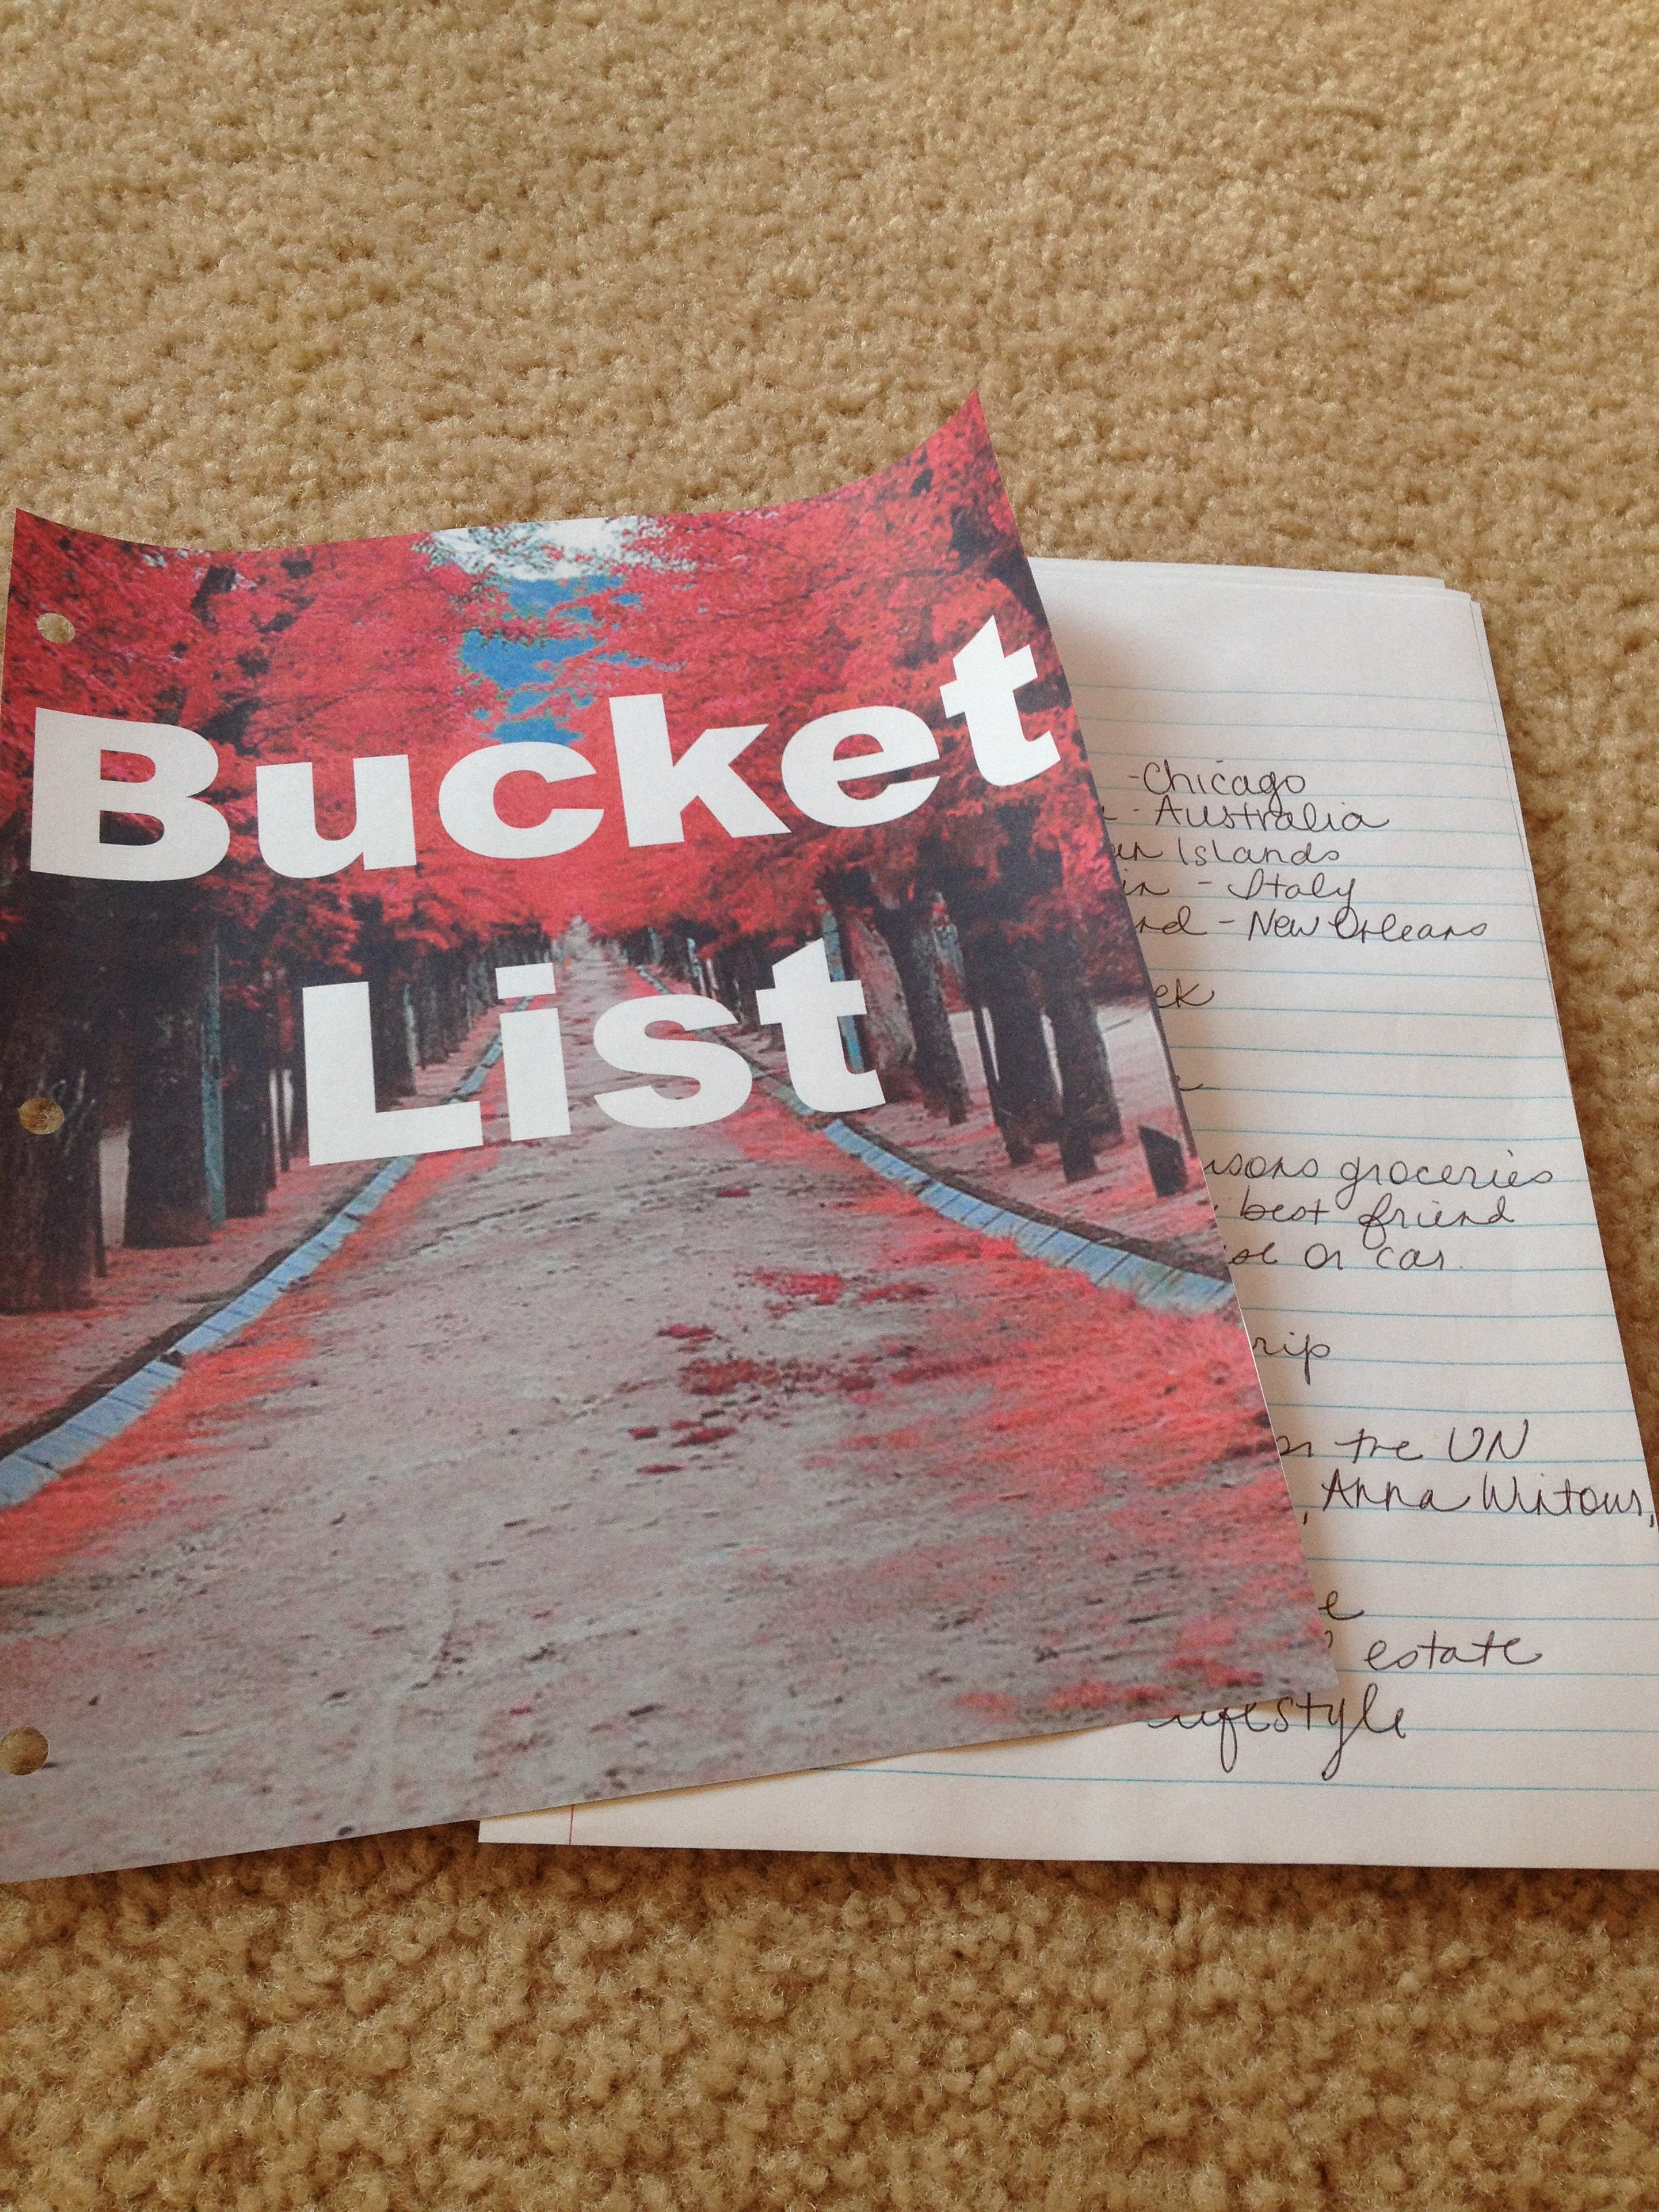 Bucket
List
- Chicago
- Australia
Islands
- Italy
- New Orleans
groceries
best friend
or car.
the UN
, Anna Wintour,
estate
lifestyle